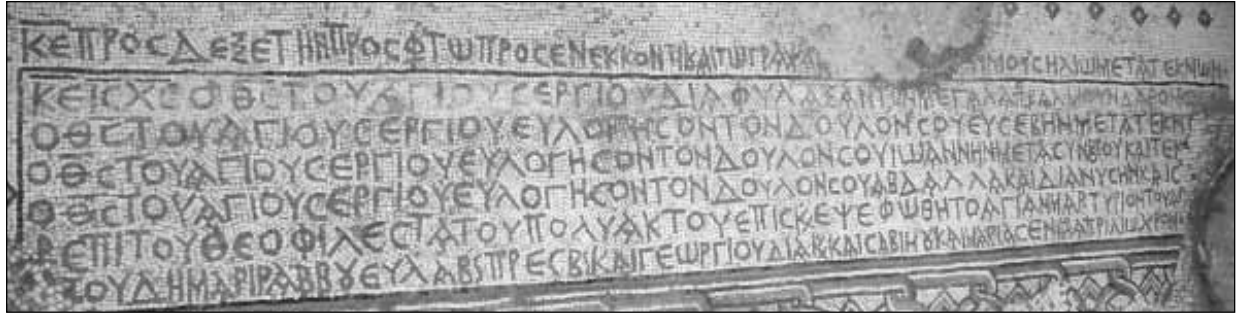 ΚΕΠΡΟСΔΕΞΕΤΗΝΠΡΟСΦΤШΠΡΟСΕΝΕΚΚΟΝΤΗΚΑΙΤШΓΡΑΨΑ ΜΟΥСΗΛΙШΜΕΤΑΤΕΚΝШΝ
ΚΕΙСΧСΟΘСΤΟΥΑΓΙΟΥСΕΡΓΙΟΥΔΙΑΦΥΛΑΞΑΝΤΗΝΜΕΓΑΛΑ
ΟΘСΤΟΥΑΓΙΟΥСΕΡΓΙΟΥΕΥΛΟΓΗСΟΝΤΟΝΔΟΥΛΟΝСΟΥΕΥСΕΒΗΝΜΕΤΑΤΕΚΝ
ΟΘСΤΟΥΑΓΙΟΥСΕΡΓΙΟΥΕΥΛΟΓΗСΟΝΤΟΝΔΟΥΛΟΝСΟΥΙШΑΝΝΗΝΜΕΤΑСΥΝΒΙΟΥΚΑΙΤΕΚ
ΟΘСΤΟΥΑΓΙΟΥСΕΡΓΙΟΥΕΥΛΟΓΗСΟΝΤΟΝΔΟΥΛΟΝСΟΥΑΒΔΑΛΛΑΚΑΙΔΙΑΝΥСΗΝΚΑΙС
ΕΠΙΤΟΥΘΕΟΦΙΛΕСΤΑΤΟΥΠΟΛΥΑΚΤΟΥΕΠΙСΚΕΨΕΦШΘΗΤΟΑΓΙΑΝΜΑΡΤΥΡΙΟΝΤΟΥ
ΤΟΥΔΗΜΑΡΙΡΑΒΒȢΕΥΛΑΒSΠΡΕСΒSΚΑΙΓΕШΡΓΙΟΥΔΙΑΚΚΑΙСΑΒΙΝȢΚΑΙΜΑΡΙΑС